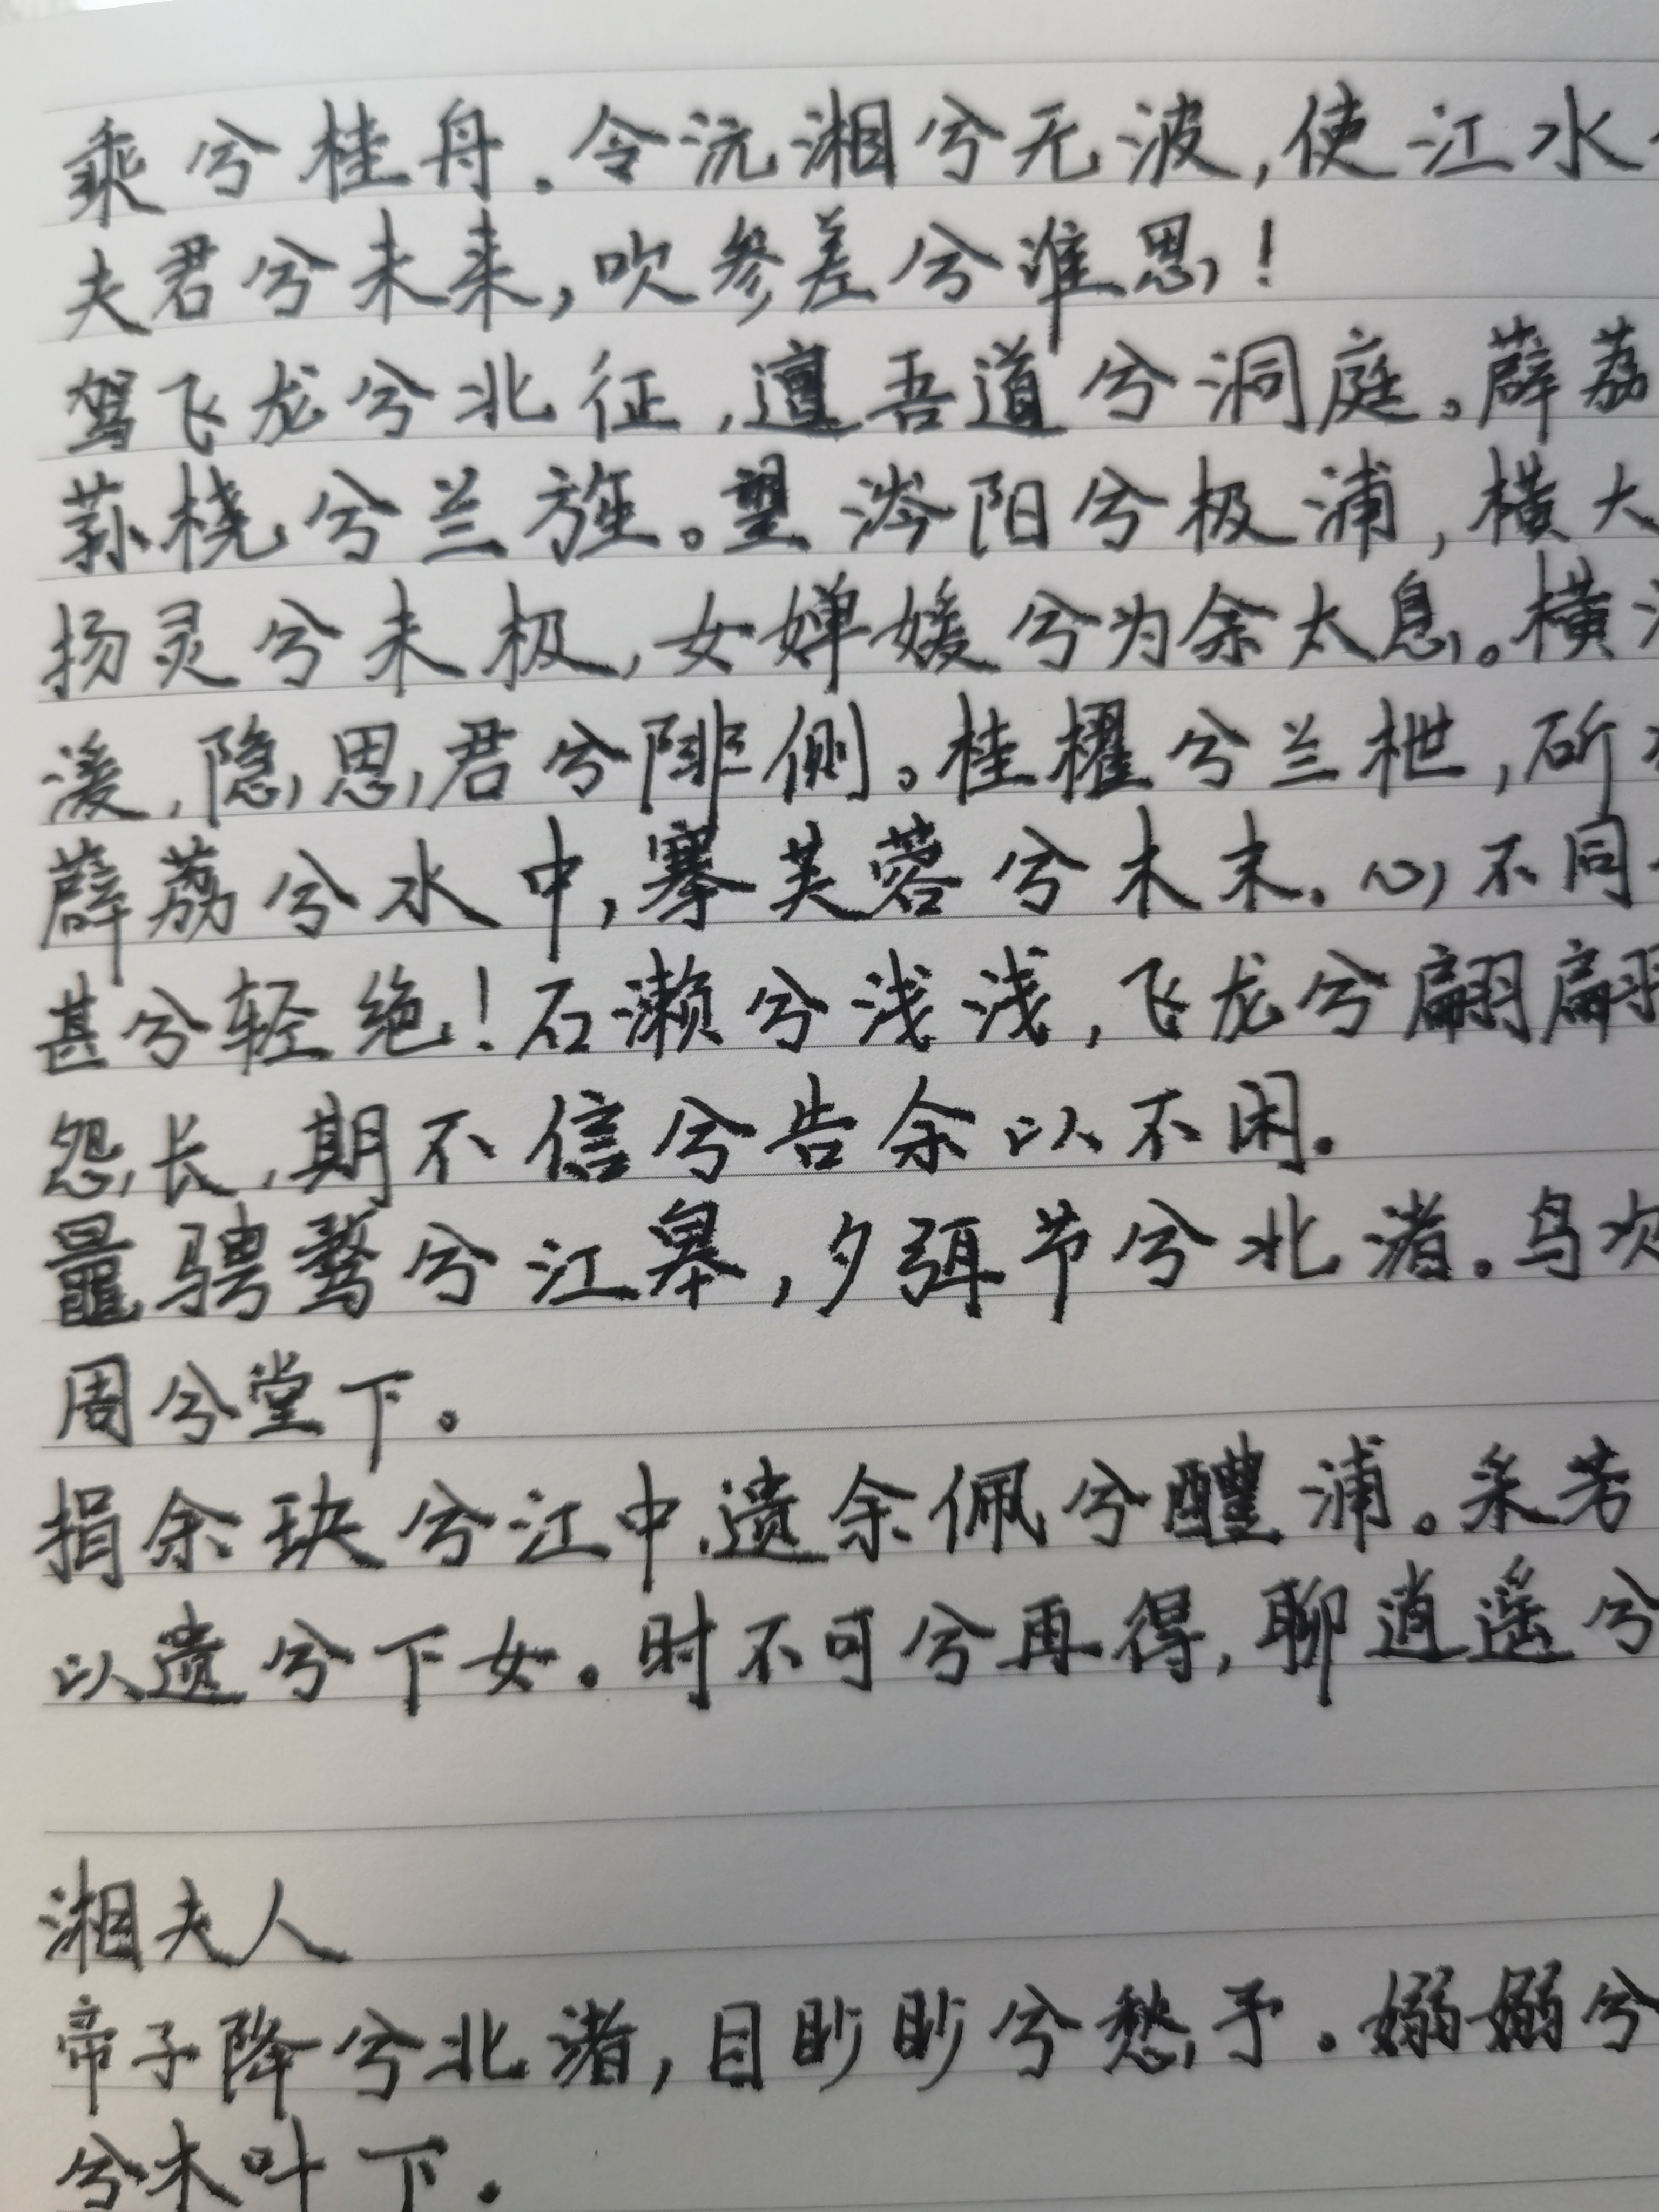 乘兮桂舟。令沅湘兮无波，使江水
夫君兮未来，吹参差兮谁思！
驾飞龙兮北征，邅吾道兮洞庭。薜荔
荪桡兮兰旌。望涔阳兮极浦，横大
扬灵兮未极，女婵媛兮为余太息。横
湲，隐思君兮陫侧。桂櫂兮兰枻，斫
薜荔兮水中，搴芙蓉兮木末。心不同
甚兮轻绝！石濑兮浅浅，飞龙兮翩翩
怨长，期不信兮告余以不闲。
鼂骋骛兮江皋，夕弭节兮北渚。鸟次
周兮堂下。
捐余玦兮江中，遗余佩兮醴浦。采芳
以遗兮下女。时不可兮再得，聊逍遥兮
湘夫人
帝子降兮北渚，目眇眇兮愁予。嫋嫋兮
兮木叶下。